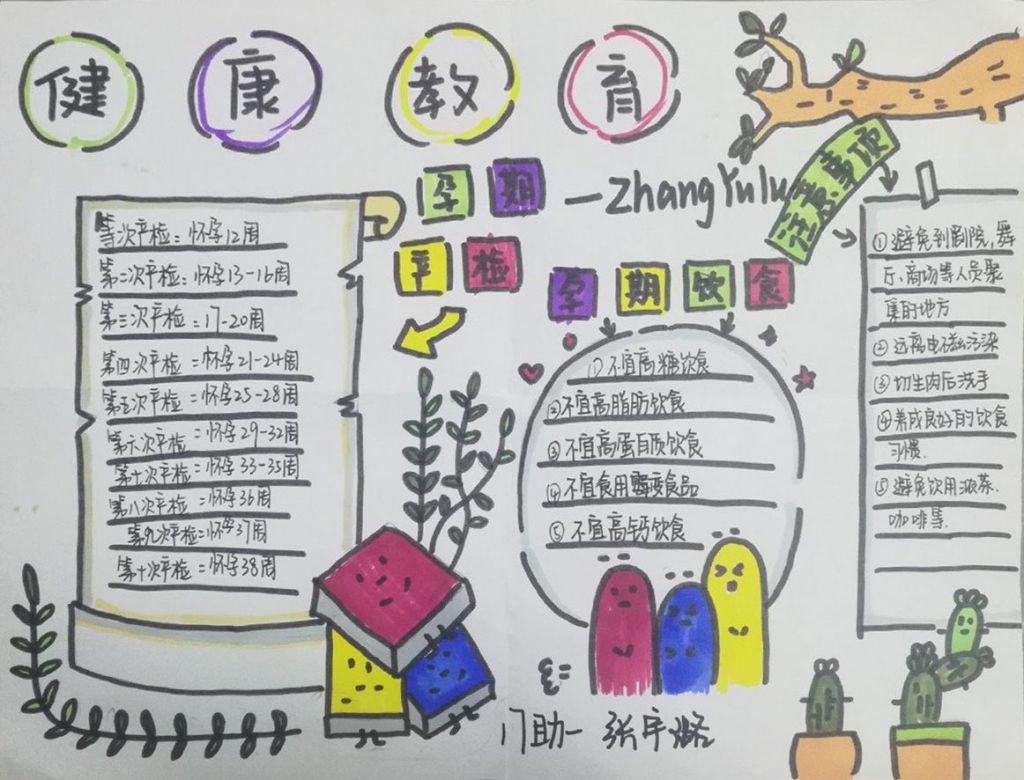 健康教育
孕期
产检
—ZhangYulu
注意事项
等次产检：怀孕12周
第二次产检：怀孕13-16周
第三次产检：17-20周
第四次产检：怀孕21-24周
第五次产检：怀孕25-28周
第六次产检：怀孕29-32周
第七次产检：怀孕33-35周
第八次产检：怀孕36周
第九次产检=怀孕37周
第十次产检：怀孕38周
孕期饮食
①不宜高糖饮食
②不宜高脂肪饮食
③不宜高蛋白质饮食
④不宜食用霉变食品
⑤不宜高钙饮食
①避免到剧院,舞
厅、商场等人员聚
集的地方
②远离电磁污染
③切生肉后洗手
④养成良好的饮食
习惯.
⑤避免饮用浓茶.
咖啡等.
门助一 张宇璐